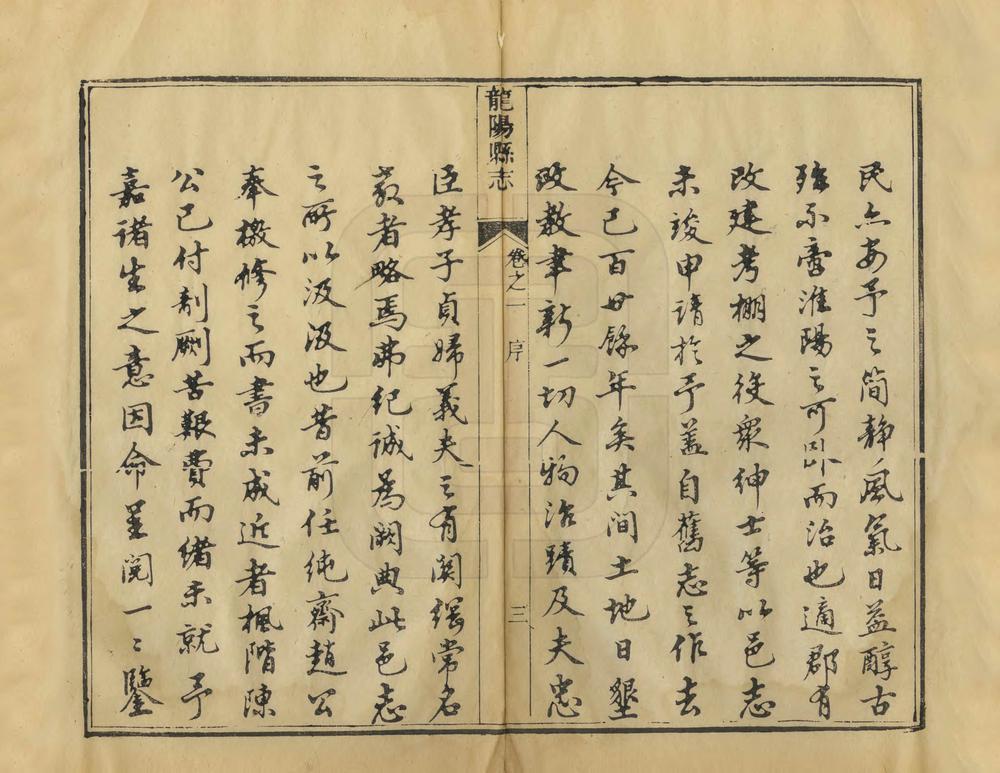 民亦安予之簡静風氣日益醇古
殆不啻淮陽之可卧而治也適郡有
改建考棚之役衆紳士等以邑志
未竣申請於予蓋自舊志之作去
今已百廿餘年矣其间土地日墾
政教聿新一切人物治蹟及夫忠
龍陽縣志
卷之一
序
三
臣孝子貞婦義夫之有関綱常名
教者略焉弗纪诚為闕典此邑志
之所以汲汲也昔前任純齋趙公
奉檄修之而書未成近者楓階陳
公已付剞劂苦艱費而緒未就予
嘉诸生之意因命呈閲一一鑒